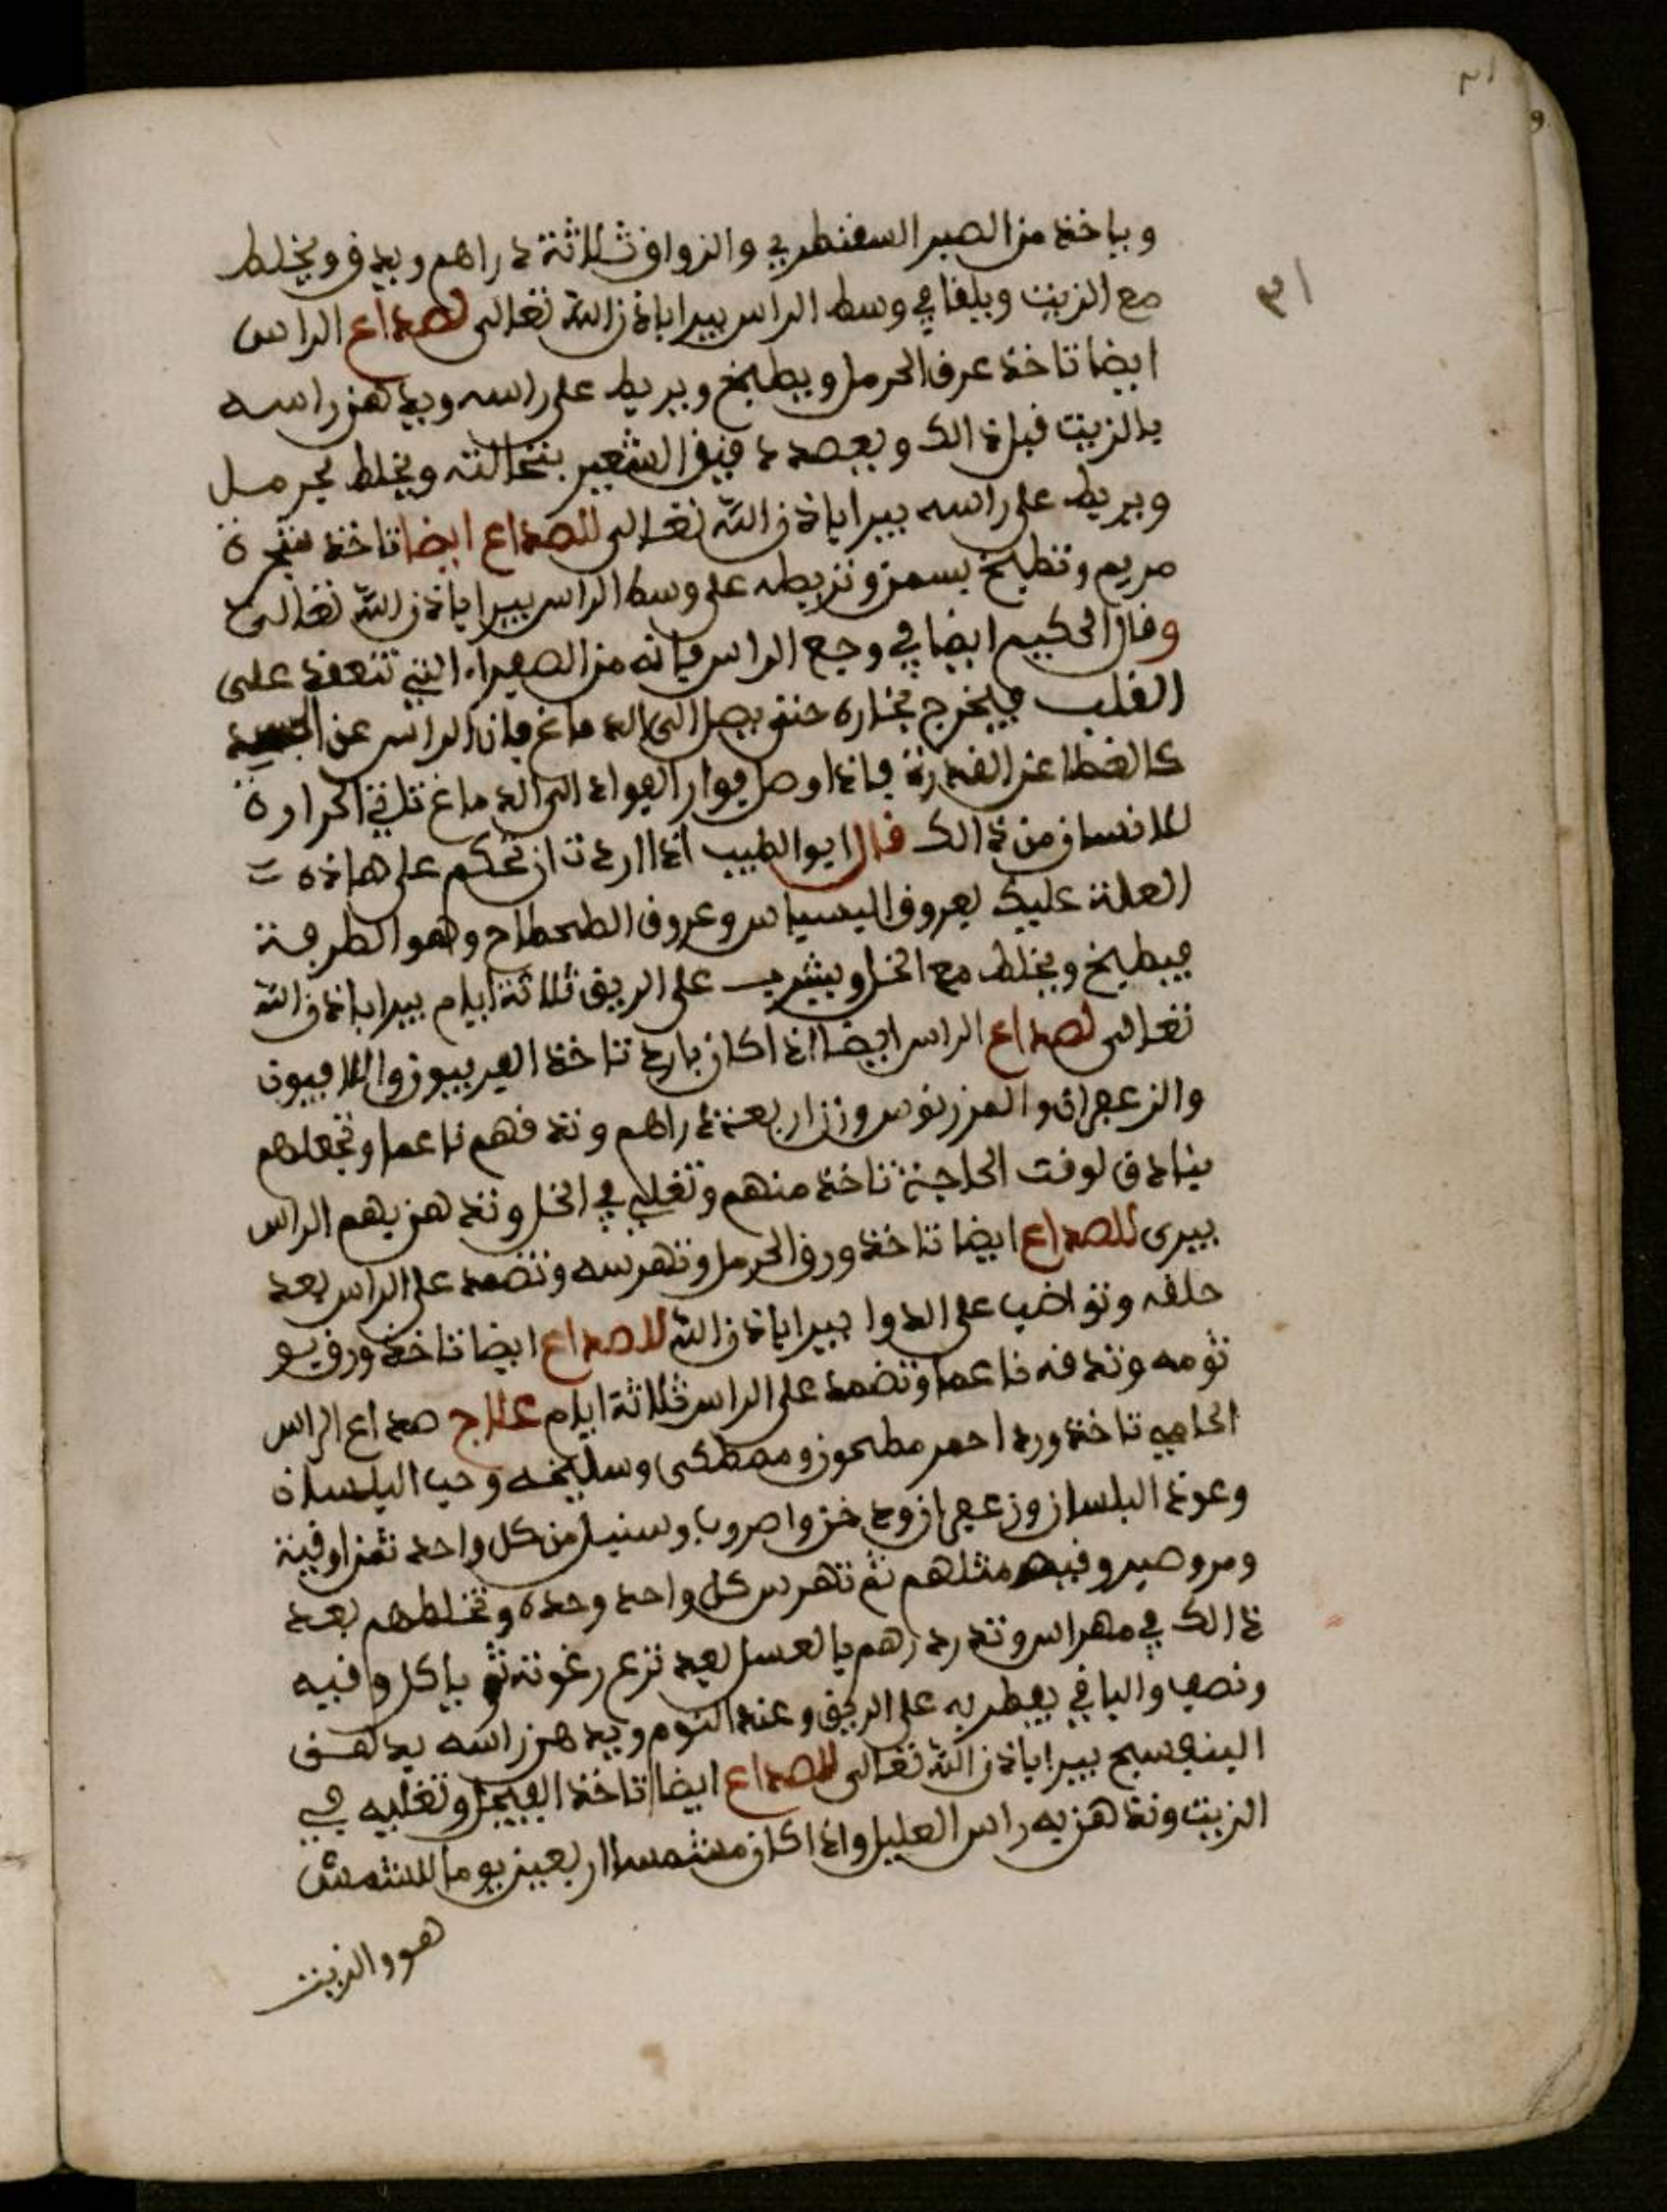 ٣١
وياخذ من الصبر السقنطري والزواق ثلاثة دراهم ويدق ويخلط
مع الزيت ويلقا في وسط الراس يبرا باذن الله تعالى لصداع الراس
ايضا تاخذ عرق الحرمل ويطبخ ويربط على راسه ويدهن راسه
بالزيت قبل ذالك ويعصد دقيق الشعير بنخالته ويخلط بحرمل
ويربط على راسه يبرا باذن الله تعالى للصداع ايضا تاخذ شجرة
مريم وتطبخ بسمن وتربطه على وسط الراس يبرا باذن الله تعالى
وقال الحكيم ايضا في وجع الراس فانه من الصفراء التي تتعقد على
القلب فيخرج بخاره حتى يصل الى الدماغ فان الراس عن الجسد
كالغطا عن القدرة فاذا وصل فوار الفواد الى الدماغ تلقى الحرارة
للانسان من ذالك قال ابو الطبيب اذا اردت ان تحكم على هاذه
العلة عليك بعروق البسباس وعروق الطحطاح وهو الطرفة
فيطبخ ويخلط مع الخل ويشرب على الريق ثلاثة ايام يبرا باذن الله
تعالى لصداع الراس ايضا اذا كان بارد تاخذ الفربيون والافيون
والزعفران والمرزنوس وزن اربعة دراهم وتدقهم ناعما وتجعلهم
بنادق لوقت الحاجة تاخذ منهم وتغليه في الخل وتدهن بهم الراس
يبرى للصداع ايضا تاخذ ورق الحرمل وتهرسه وتضمد على الراس بعد
حلقه وتواضب على الدوا يبرا باذن الله للصداع ايضا تاخذ ورق بو
ثومه وتدقه ناعما وتضمد على الراس ثلاثة ايام علاج صداع الراس
الحامي تاخذ ورد احمر مطحون ومصطكى وسليخه وحب البلسان
وعود البلسان وزعفران ودخن واصروبا وسنبل من كل واحد ثمن اوقية
ومر وصبر وقيه مثلهم ثم تهرس كل واحد وحده وتخلطهم بعد
ذالك في مهراس وتدردرهم بالعسل بعد نزع رغوته ثم ياكل وقيه
ونصف والباقي يفطر به على الريق وعند النوم ويدهن راسه بدهن
البنفسج يبرا باذن الله تعالى للصداع ايضا تاخذ الفيجل وتغليه في
الزيت وتدهن به راس العليل واذا كان مشمسا اربعين يوما للشمش
هو والزيت